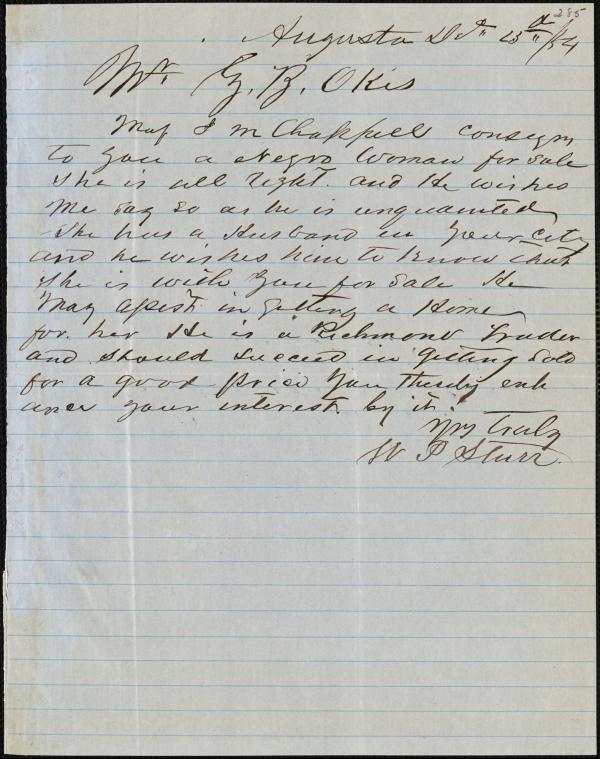 285
Augusta 23d /54
Mr Z. B. Okes
Maj J M Chappell consigns
to you a Negro Woman for sale
She is all right. and He wishes
me say so as he is unquanted
She has a Husband in your city
and he wishes him to know that
She is with you for sale He
may assist in getting a Home
for her He is a Richmond Trader
and should succeed in getting sold
for a good price you thereby enh
ance your interest by it.
Yrs Truly
W P Starr